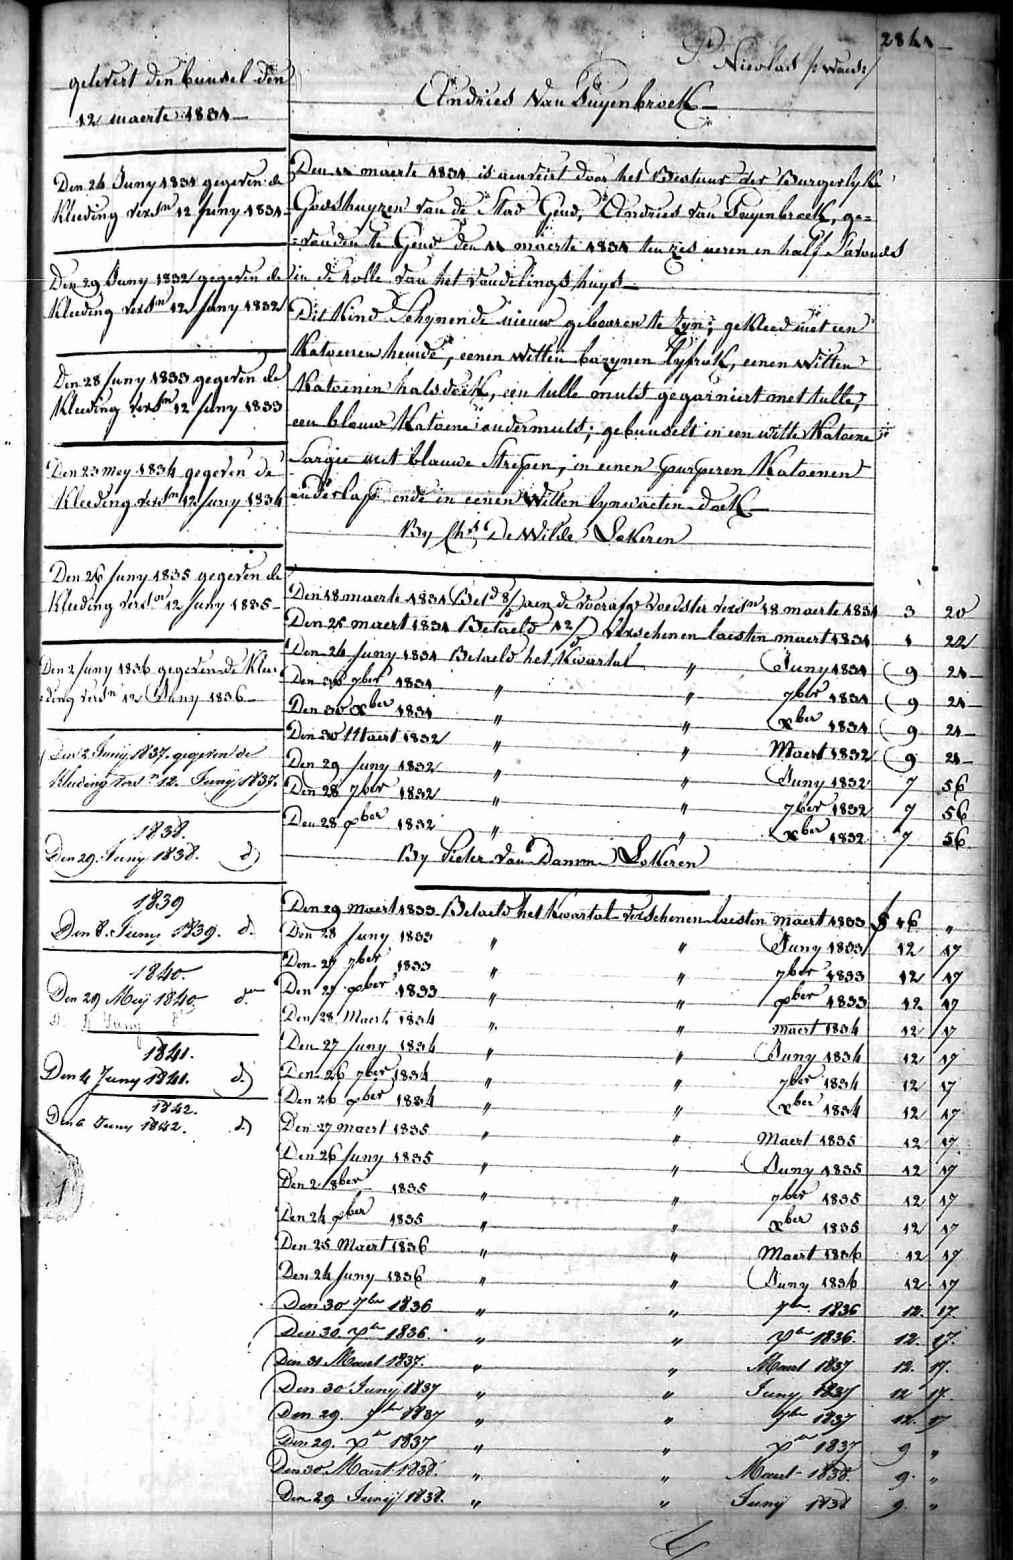 St Nicolas
gelevert den bunsel den
12 maerte 1831
Andries Van Puyenbroeck
Den 24 Juny 1831 gegeven de
Kleeding verschn 12 Juny 1831
Den 29 Juny 1832 gegeven de
Kleeding verschn 12 Juny 1832
Den 28 Juny 1833 gegeven de
Kleeding verschn 12 Juny 1833
Den 23 mey 1834 gegeven de
Kleeding verschn 12 Juny 1834
Den 26 Juny 1835 gegeven de
Kleeding verschn 12 Juny 1835
Den 2 Juny 1836 gegeven de Klee
ding versn 12 Juny 1836
Den 2 Junij 1837 gegeven de
Kleeding versn 12 Juny 1837.
1838.
Den 29. Juny 1838. d)
1839
Den 8. Juny 1839. d.
1840.
Den 29 Meÿ 1840
1841.
Den 4 Juny 1841. d.)
1842.
Den 6 Juny 1842. d)
Den 11 maerte 1831 is aenveirt door het Bestuur der Burgerlyke
Godshuyzen van de Stad Gend, Andries van Puyenbroeck, ge=
=vonden te Gend den 11 maerte 1831 ten zes ueren en half S'avonds
in de rolle van het vondelings huys
Dit Kind Schynende nieuw gebooren te zyn; gekleed met een
Katoenen hemde, eenen witten bazynen lyfrok, eenen witten
Katoenen halsdoek, een tulle muts gegarniert met tulle,
een blauw Katoene ondermuts; gebunselt in een witte Katoene
Sargie met blauwe Strepen, in eenen purperen Katoenen
onderlap ende in eenen witten lynwaeten doek
By De Wilde Lokeren
Den 18 maerte 1831 aen de voorafge voedster versn 18 maerte 1831 3 20
Den 25 maert 1831 Betaeld verschenen laesten maert 1831 1 22
Den 24 Juny 1831 Betaeld het Kwartal " Juny 1831 9 21
Den 30 7ber 1831 " " 7ber 1831 9 21
Den 30 Xber 1831 " " Xber 1831 9 21
Den 30 Maert 1832 " " Maert 1832 9 21
Den 29 Juny 1832 " " Juny 1832 7 56
Den 28 7ber 1832 " " 7ber 1832 7 56
Den 28 Xber 1832 " " Xber 1832 7 56
By Pieter Van Damme Lokeren
Den 29 Maert 1833 Betaeld het Kwartal verschenen laesten maert 1833 46 "
Den 28 Juny 1833 " " Juny 1833 12 17
Den 27 7ber 1833 " " 7ber 1833 12 17
Den 27 Xber 1833 " " Xber 1833 12 17
Den 28 Maert 1834 " " maert 1834 12 17
Den 27 Juny 1834 " " Juny 1834 12 17
Den 26 7ber 1834 " " 7ber 1834 12 17
Den 26 Xber 1834 " " Xber 1834 12 17
Den 27 maert 1835 " " Maert 1835 12 17
Den 26 Juny 1835 " " Juny 1835 12 17
Den 2 8ber 1835 " " 7ber 1835 12 17
Den 24 Xber 1835 " " Xber 1835 12 17
Den 25 Maert 1836 " " Maert 1836 12 17
Den 24 Juny 1836 " " Juny 1836 12 17
Den 30 7ber 1836 " " 7ber 1836 12. 17.
Den 30 Xber 1836. " " Xber 1836. 12. 17.
Den 31 Maert 1837. " " Maert 1837 12. 17.
Den 30 Juny 1837 " " Juny 1837 12 17.
Den 29. 7ber 1837 " " 7ber 1837 12. 17
Den 29. Xber 1837 " " Xber 1837 9 "
Den 30 Maert 1838. " " Maert 1838. 9. "
Den 29 Junij 1838. " " Junij 1838 9. "